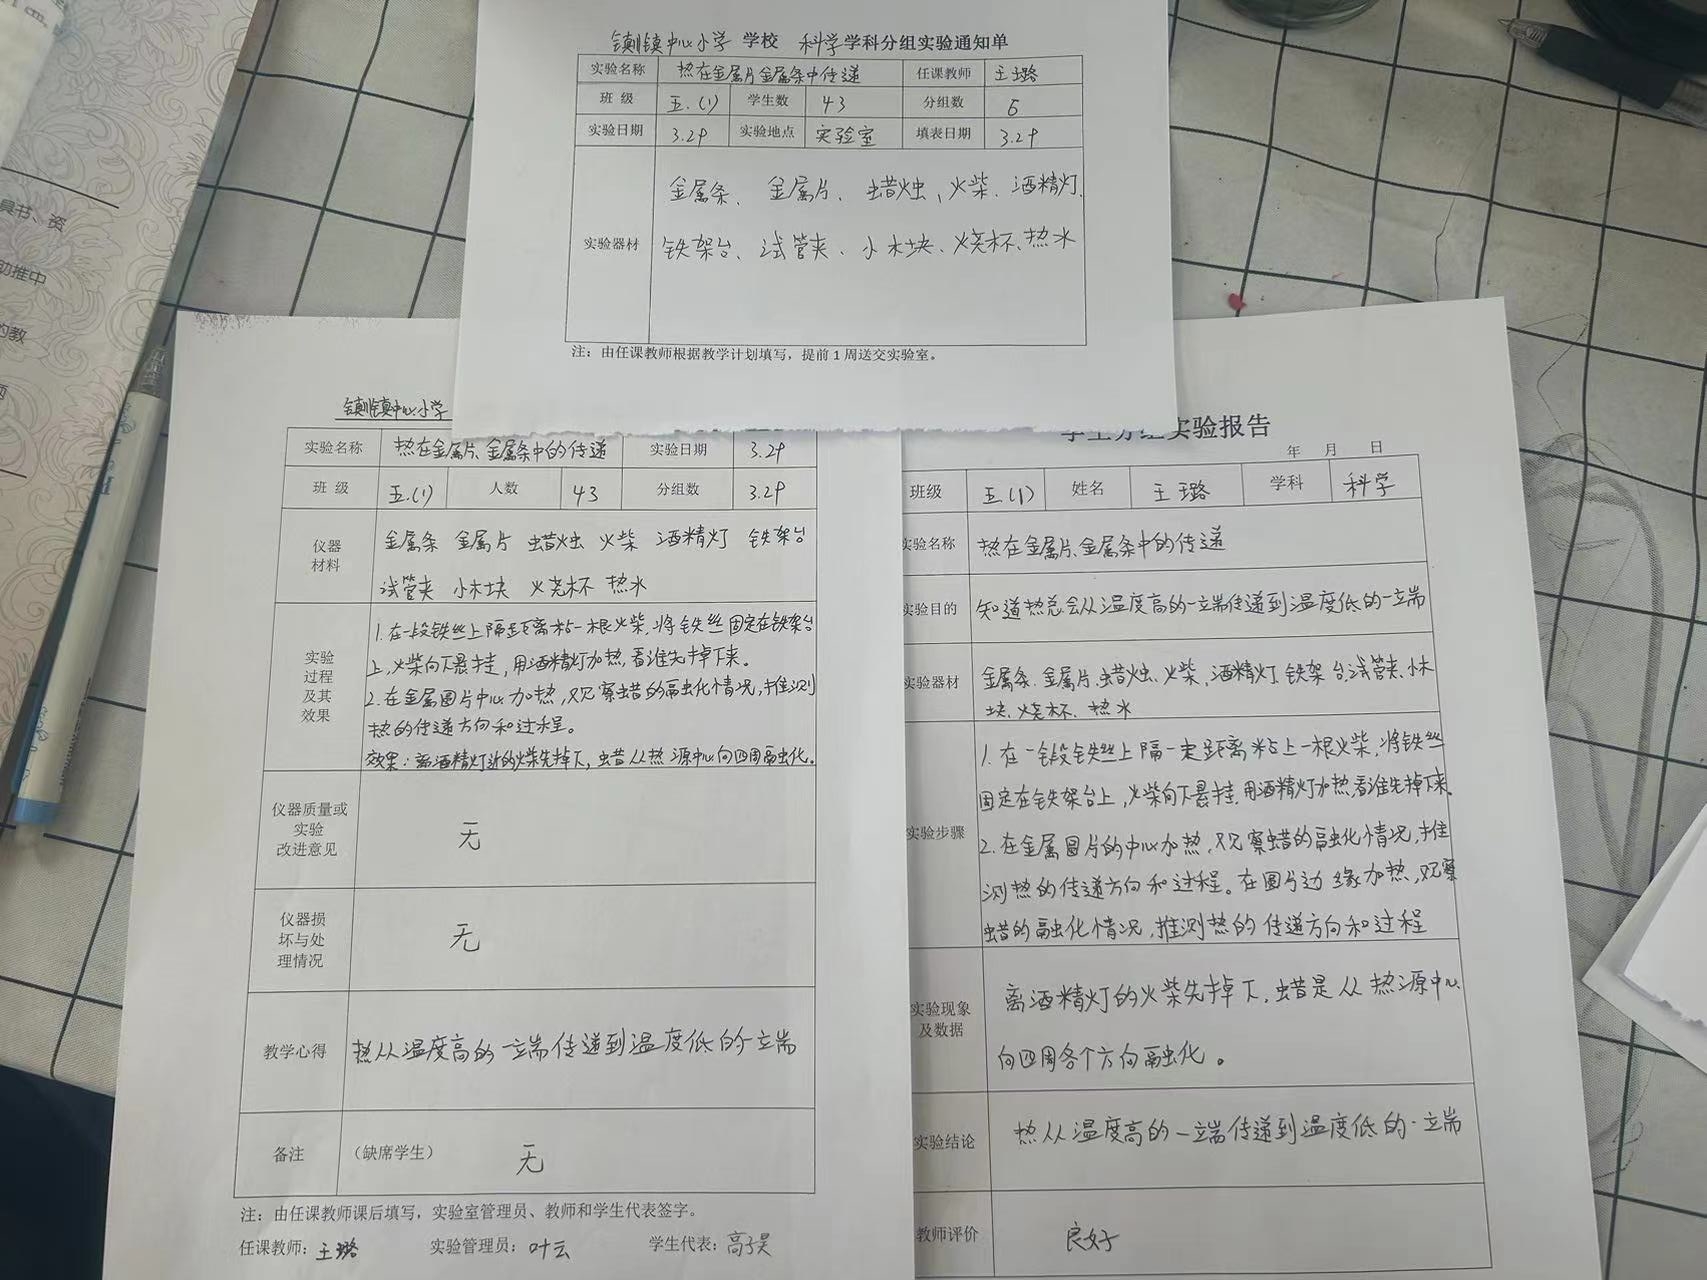 镇川镇中心小学 学校 科学学科分组实验通知单
实验名称 热在金属片金属条中传递 任课教师 王璐
班 级 五.(1) 学生数 43 分组数 6
实验日期 3.29 实验地点 实验室 填表日期 3.29
金属条、金属片、蜡烛、火柴、酒精灯、
实验器材 铁架台、试管夹、小木块、烧杯、热水
注：由任课教师根据教学计划填写，提前1周送交实验室。
镇川镇中心小学
实验名称 热在金属片、金属条中的传递 实验日期 3.29
班 级 五.(1) 人数 43 分组数 3.29
仪器
材料
金属条 金属片 蜡烛 火柴 酒精灯 铁架台
试管夹 小木块 烧杯 热水
实验
过程
及其
效果
1.在一段铁丝上隔距离粘一根火柴,将铁丝固定在铁架台
上,火柴向下悬挂,用酒精灯加热,看谁先掉下来。
2.在金属圆片中心加热,观察蜡的融化情况,推测
热的传递方向和过程。
效果:离酒精灯近的火柴先掉下,蜡从热源中心向四周融化。
仪器质量或
实验
改进意见
无
仪器损
坏与处
理情况
无
教学心得 热从温度高的一端传递到温度低的一端
备注 （缺席学生） 无
注：由任课教师课后填写，实验室管理员、教师和学生代表签字。
任课教师：王璐 实验管理员：叶云 学生代表：高子昊
学生分组实验报告
年 月 日
班级 五(1) 姓名 王璐 学科 科学
实验名称 热在金属片、金属条中的传递
实验目的 知道热总会从温度高的一端传递到温度低的一端
实验器材 金属条、金属片、蜡烛、火柴、酒精灯 铁架台、试管夹、小木
块、烧杯、热水
实验步骤
1.在一段铁丝上隔一定距离粘上一根火柴,将铁丝
固定在铁架台上,火柴向下悬挂,用酒精灯加热,看谁先掉下来。
2.在金属圆片的中心加热,观察蜡的融化情况,推
测热的传递方向和过程。在圆片边缘加热,观察
蜡的融化情况,推测热的传递方向和过程
实验现象
及数据
离酒精灯的火柴先掉下,蜡是从热源中心
向四周各个方向融化。
实验结论 热从温度高的一端传递到温度低的一端
教师评价 良好